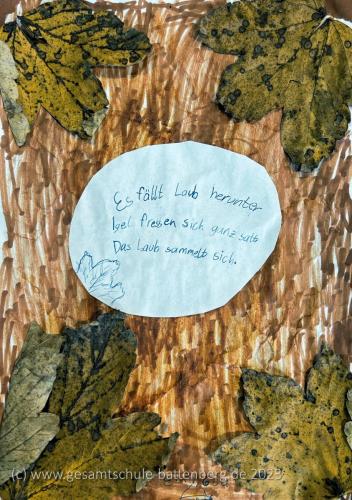 Es fällt Laub herunter
Igel fressen sich ganz satt
Das Laub sammelt sich.
(c) www.gesamtschule-battenberg.de 2023